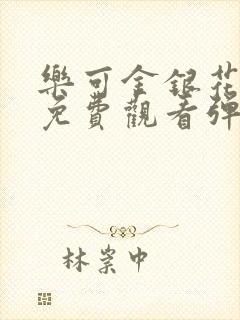 樂可金銀花
免費觀看彈
林棠中